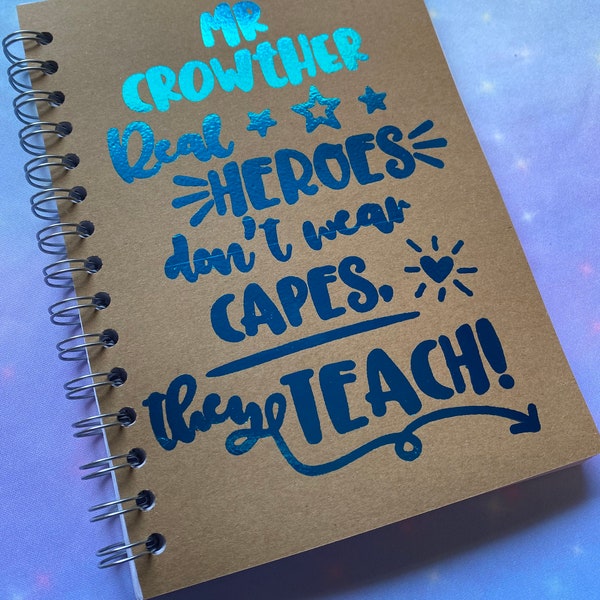 MR
CROWTHER
Real
HEROES
don't wear
CAPES,
they TEACH!